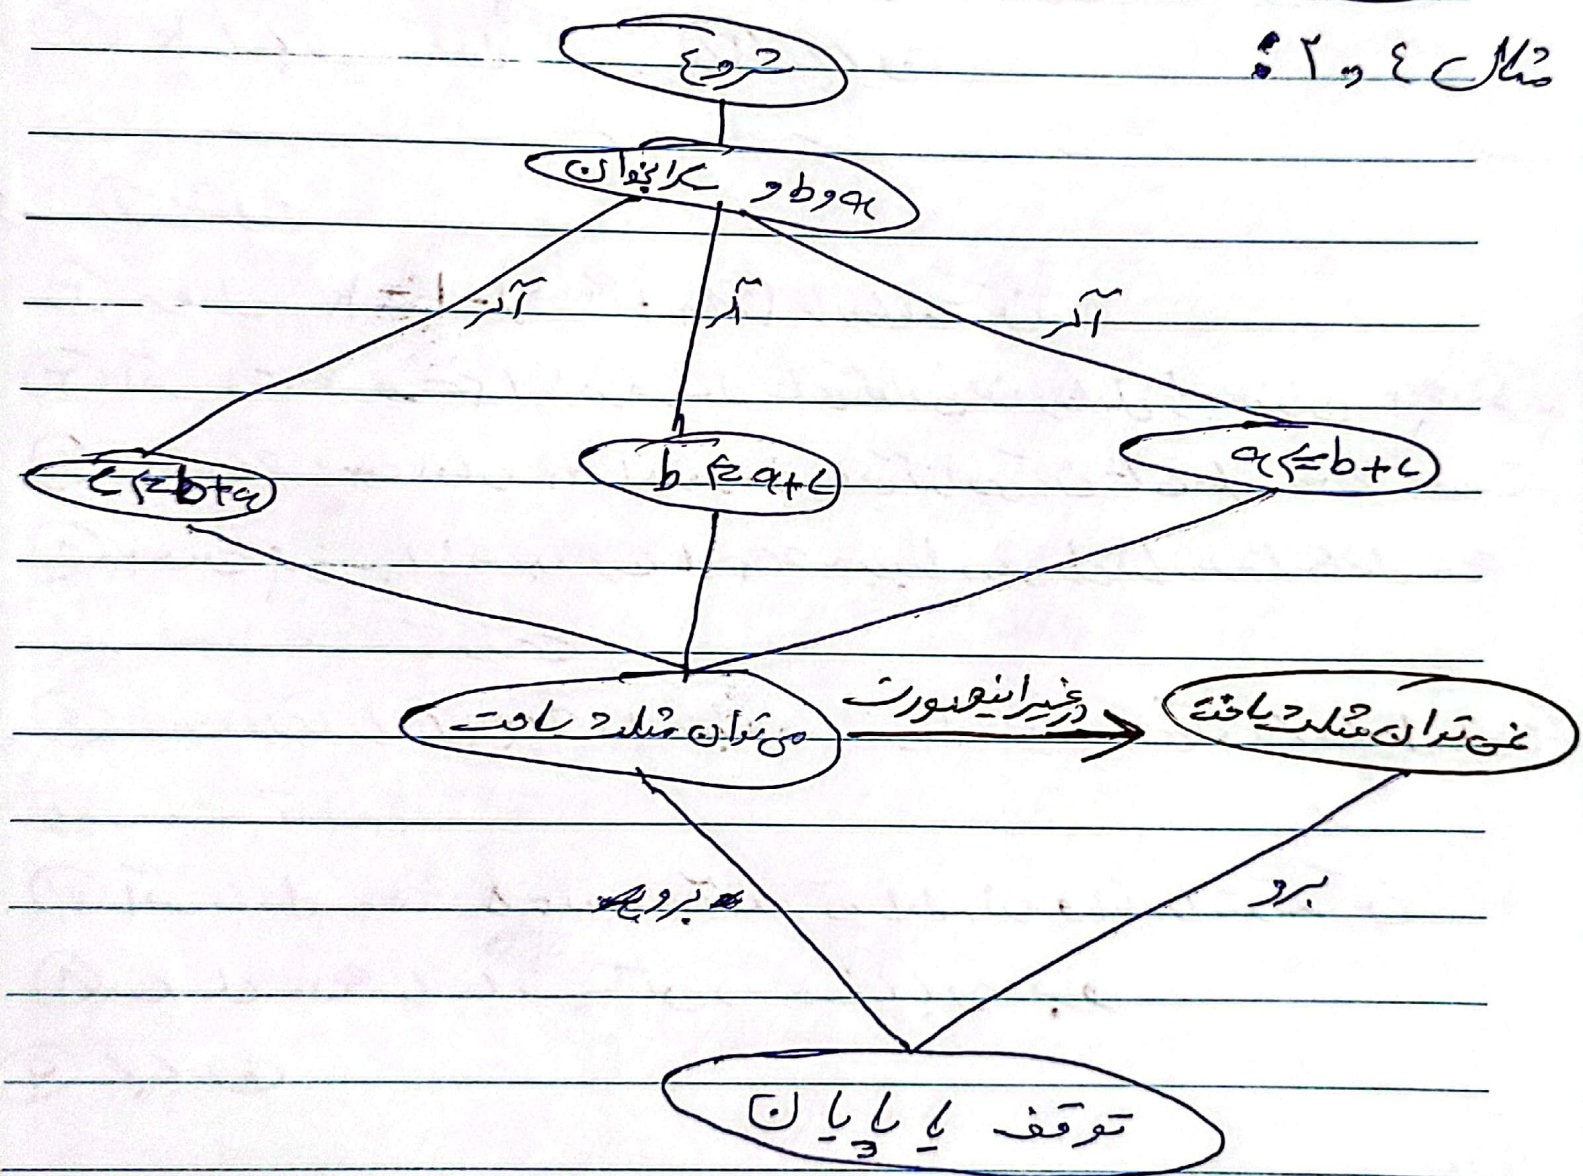 مثال ٤ و ٢ :
شروع
a و b و c را بخوان
اگر
اگر
اگر
a <= b+c
b <= a+c
c <= b+a
می توان مثلث ساخت
در غیر اینصورت
نمی توان مثلث ساخت
برو
برو
توقف یا پایان